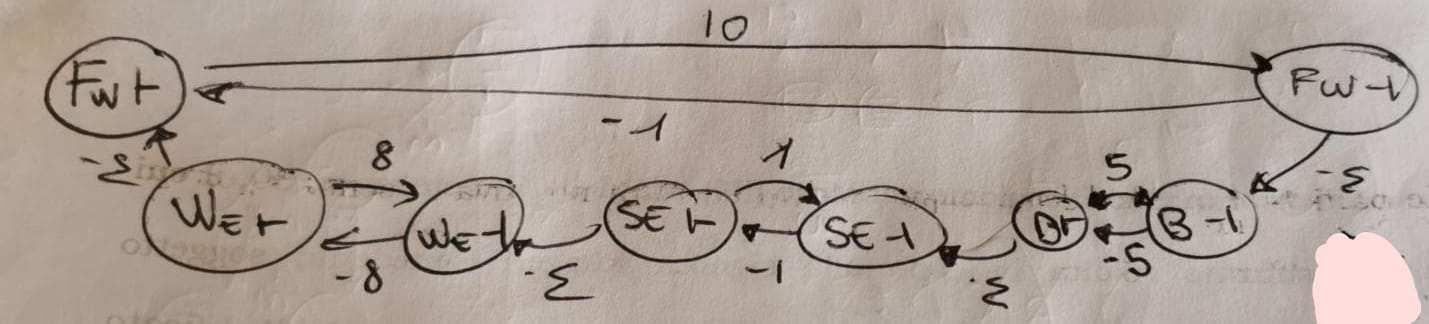 10
Fw⊢
Fw⊣
-1
-ε
8
1
5
-ε
WE⊢
WE⊣
SE⊢
SE⊣
B⊢
B⊣
-8
-ε
-1
-ε
-5